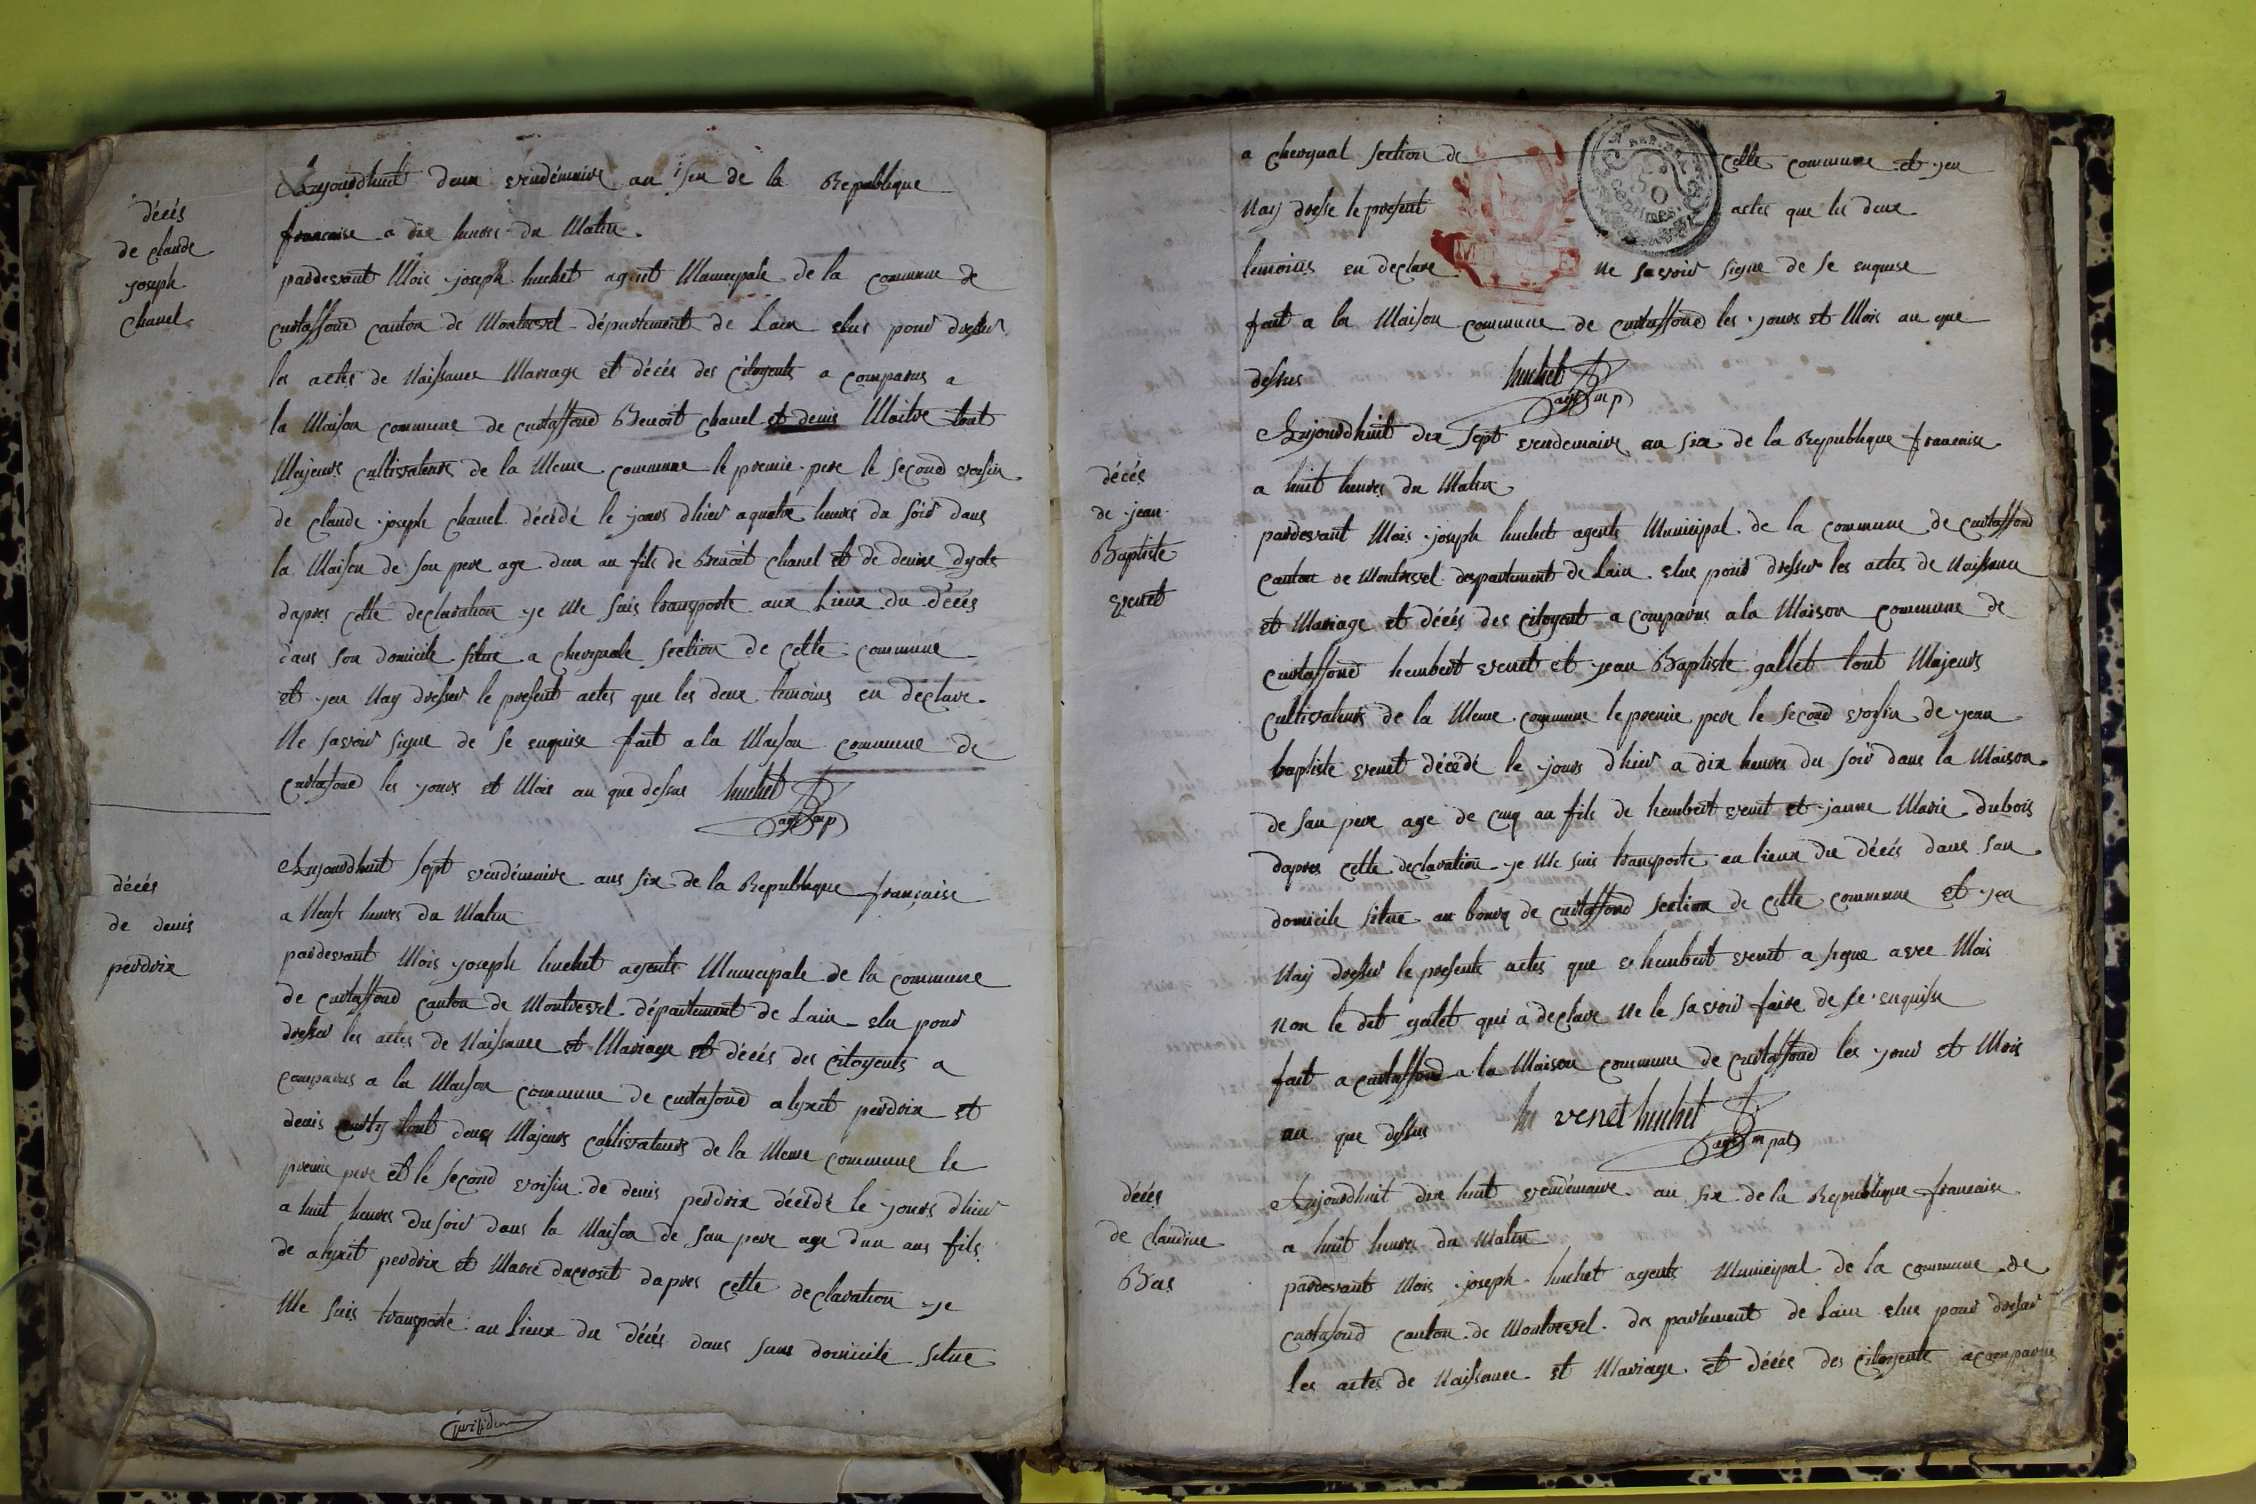 décés
de claude
joseph
chanel
Aujourdhuit deux vendémaire an six de la Republique
francaise a dix heures du Matin.
pardevant Mois joseph huchet agent Municipale de la commune de
curtaffond canton de Montrevel département de Lain elus pour dresser
les actes de Naissance Mariage et décés des citoyents a comparus a
la Maison commune de curtaffond Benoit chanel et denis Maitre tout
Majeurs cultivateurs de la Meme commune le premie pere le second voisin
de claude joseph chanel décédé le jours dhier a quatre heures du soir dans
la Maison de son pere age dun an fils de Benoit chanel et de denise
dapres cette declaration je Me suis transporte aux Lieux du décés
dans son domicile situe a section de cette commune
et jen Nay dresser le present actes que les deux temoins en déclare
Ne savoir signe de se enquise fait a la Maison commune de
curtafond les jours et Mois an que dessus huchet
agt mp
décés
de denis
perdrix
Aujourdhuit sept vendémaire ans six de la Republique française
a Neuf heures du Matin
pardevant Mois joseph huchet agents Municipale de la commune
de curtaffond canton de Montrevel département de Lain elu pour
dresser les actes de Naissance et Mariage et décés des citoyents a
comparus a la Maison commune de curtafond perdrix et
denis tout deux Majeurs cultivateurs de la Meme commune le
premie pere et le second voisin de denis perdrix décédé le jours dhier
a huit heures du soir dans la Maison de son pere age dun ans fils
de perdrix et Marie ducroset dapres cette declaration je
Me suis transporte au Lieux du décés dans sans domicile situe
a section de cette commune et jen
Nay dresse le present actes que les deux
temoins en declare Ne savoir signe de se enquise
fait a la Maison commune de curtaffond les jours et Mois an que
dessus huchet
agt mp
50
centimes
décés
de jean
Baptiste
venet
Aujourdhuit dix sept vendemaire an six de la Republique francaise
a huit heures du Matin
pardevant Mois joseph huchet agents Municipal de la commune de curtaffond
canton de Montrevel departement de Lain elus pour dresser les actes de Naissance
et Mariage et décés des citoyent a comparus a la Maison commune de
curtaffond humbert venet et jean Baptiste gallet tout Majeurs
cultivateurs de la Meme commune le premie pere le second voisin de jean
baptiste venet décédé le jours dhier a dix heures du soir dans la Maison
de san pere age de cinq an fils de humbert venet et janne Marie dubois
dapres cette declaration je Me suis transporte au lieux du décés dans san
domicile situe au bourg de curtaffond section de cette commune et jen
Nay dresser le presente actes que humbert venet a signe avec Mois
Non le dit galet qui a declare Ne le savoir faire de se enquise
fait a curtaffond a la Maison commune de curtaffond les jour et Mois
an que dessus h venet huchet
agt m pal
décés
de claudine
Bas
Aujourdhuit dix huit vendémaire an six de la Republique francaise
a huit heures du Matin
pardevant Mois joseph huchet agents Municipal de la commune de
curtafond canton de Montrevel departement de Lain elus pour dresser
les actes de Naissance et Mariage et décés des citoyents a comparus